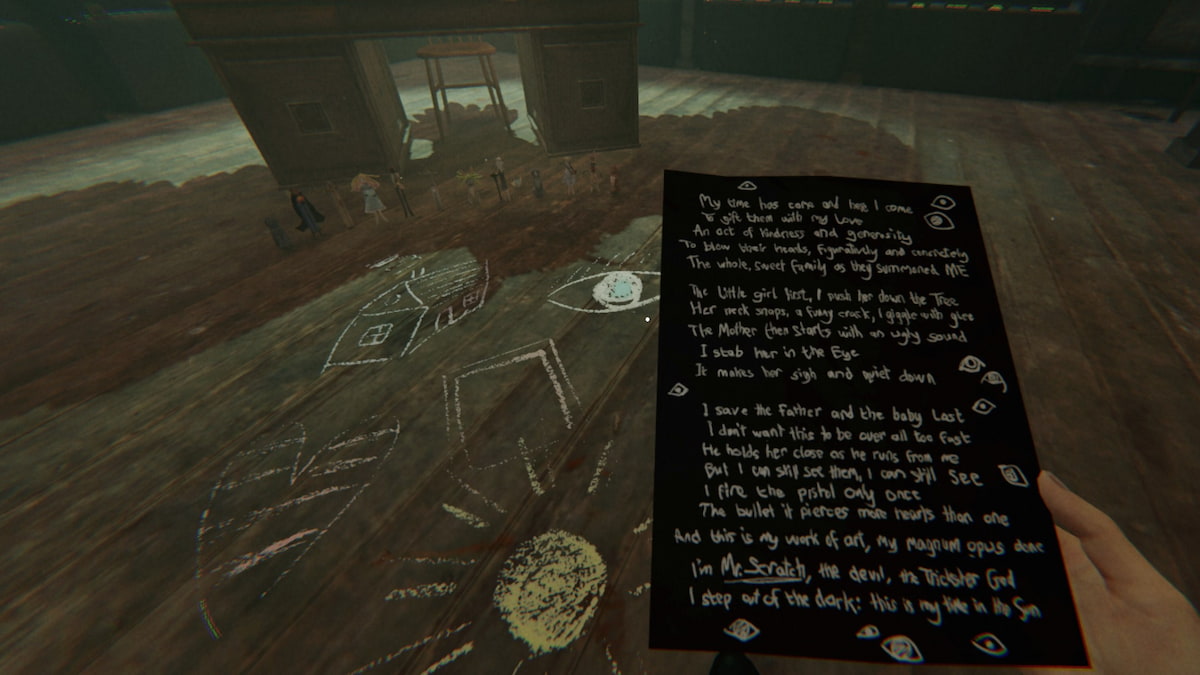 My time has come and here I come
To gift them with my Love
An act of kindness and generosity
To blow their heads, figuratively and concretely
The whole, sweet family as they summoned ME
The Little girl first, I push her down the Tree
Her neck snaps, a funny crack, I giggle with glee
The Mother then starts with an ugly sound
I stab her in the Eye
It makes her sigh and quiet down
I save the Father and the baby Last
I don't want this to be over all too fast
He holds her close as he runs from me
But I can still see them, I can still see
I fire the pistol only once
The bullet it pierces more hearts than one
And this is my work of art, my magnum opus done
I'm Mr. Scratch, the devil, the Trickster God
I step out of the dark: this is my time in the Sun